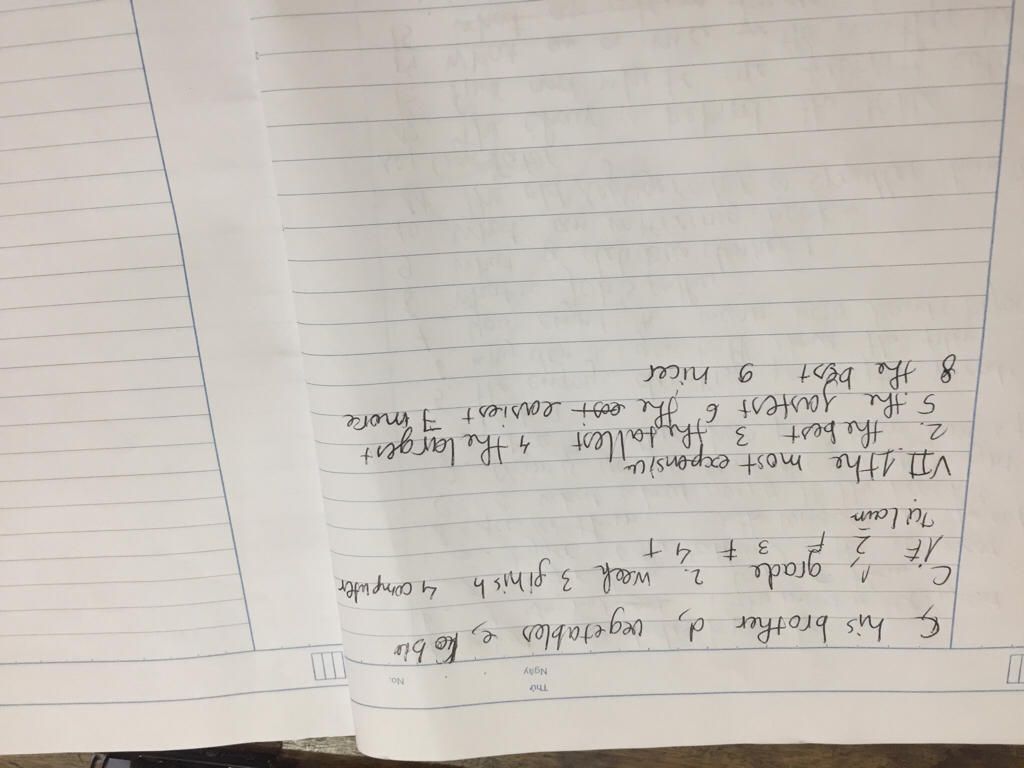 Thứ
Ngày
No.
his brother d, vegetables e,
C. 1, grade 2. week 3 finish 4 computer
1F 2 F 3 F 4 T
Tự làm
VII. 1 the most expensive
2. the best 3 the tallest 4 the largest
5. the fastest 6 the easiest 7 more
8 the best 9 nicer